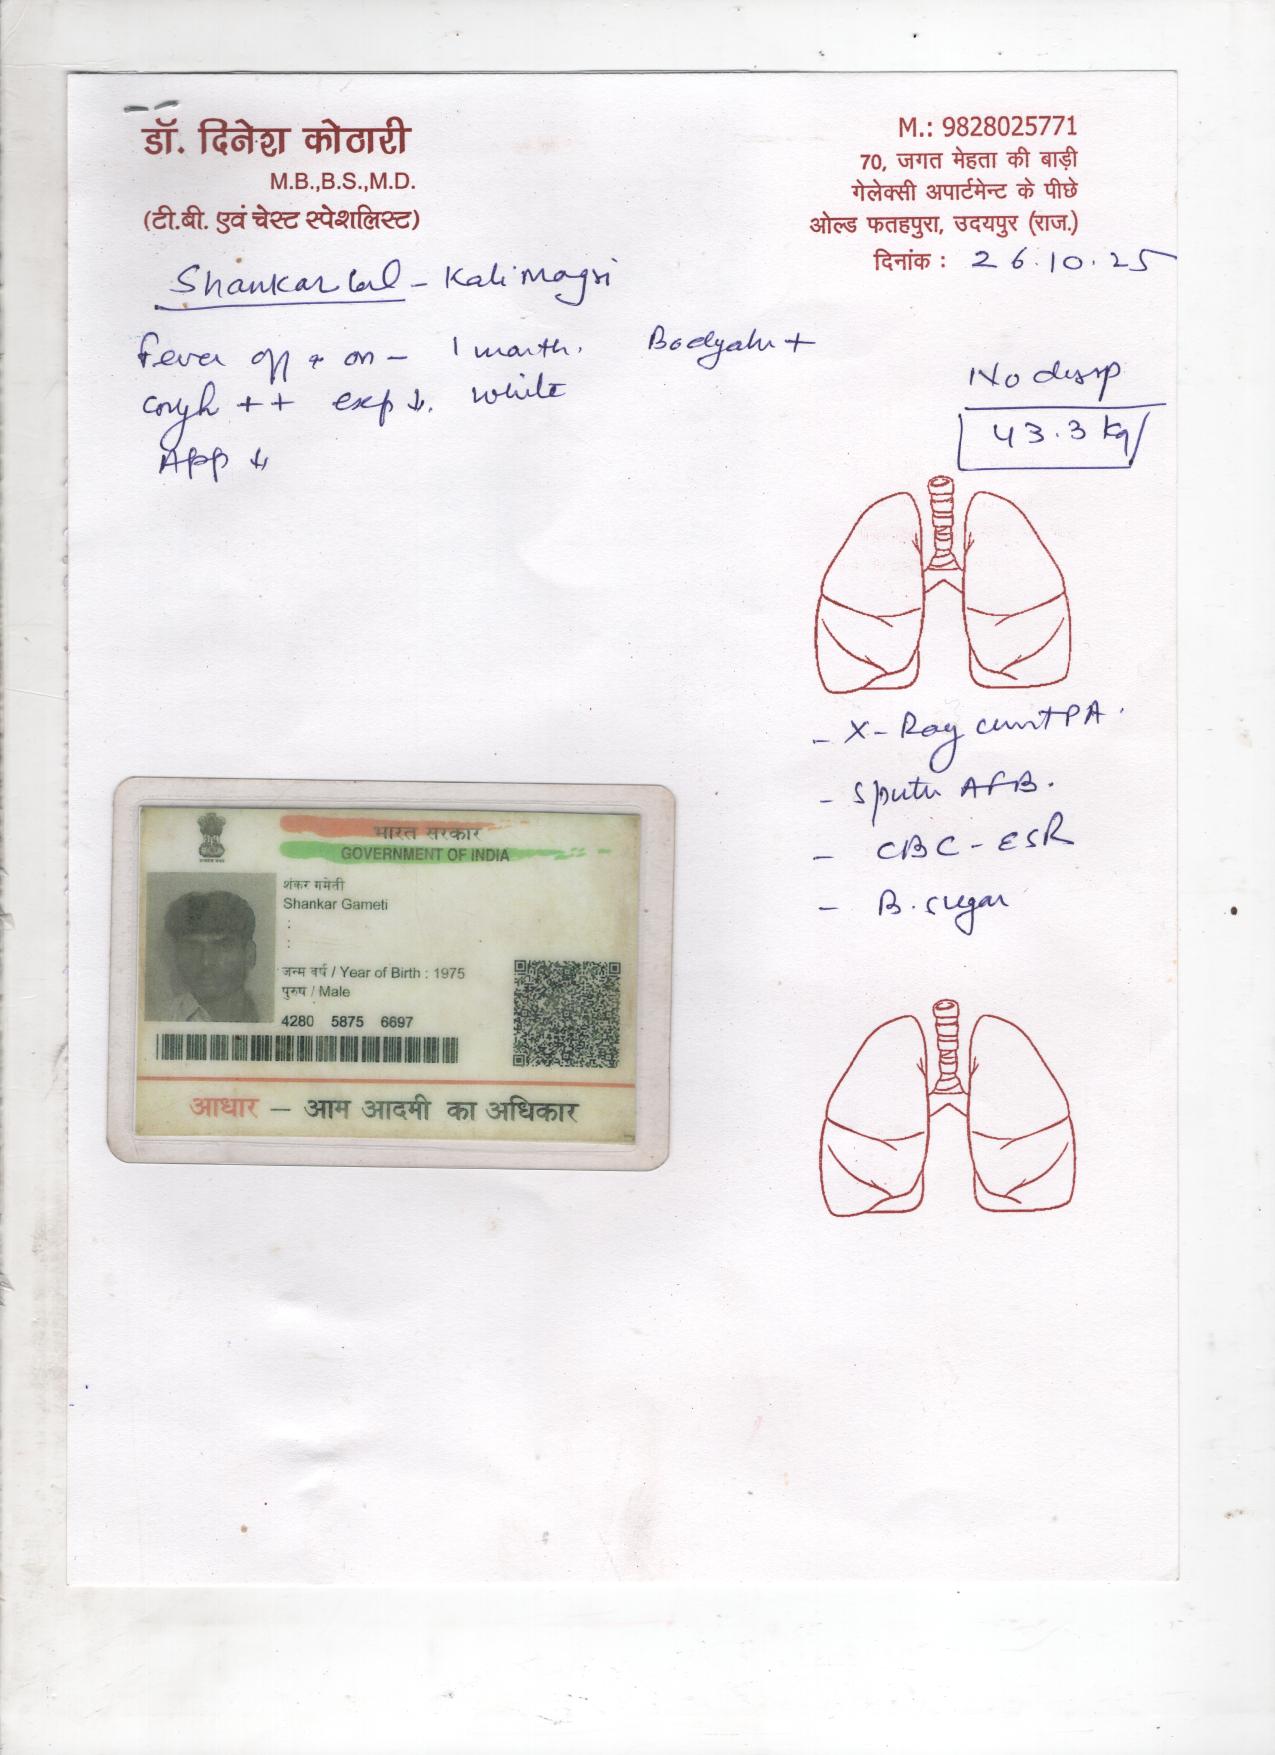 डॉ. दिनेश कोठारी
M.B.,B.S.,M.D.
(टी.बी. एवं चेस्ट स्पेशलिस्ट)
M.: 9828025771
70, जगत मेहता की बाड़ी
गेलेक्सी अपार्टमेन्ट के पीछे
ओल्ड फतहपुरा, उदयपुर (राज.)
दिनांक : 26.10.25
Shankar lal - Kali Magri
Fever off & on - 1 month. Bodyache +
cough ++ exp ↓. white
App ↓
No dysp
43.3 kg
- X-Ray chest PA.
- Sputum AFB.
- CBC - ESR
- B. sugar
भारत सरकार
GOVERNMENT OF INDIA
शंकर गमेती
Shankar Gameti
जन्म वर्ष / Year of Birth : 1975
पुरुष / Male
4280 5875 6697
आधार – आम आदमी का अधिकार